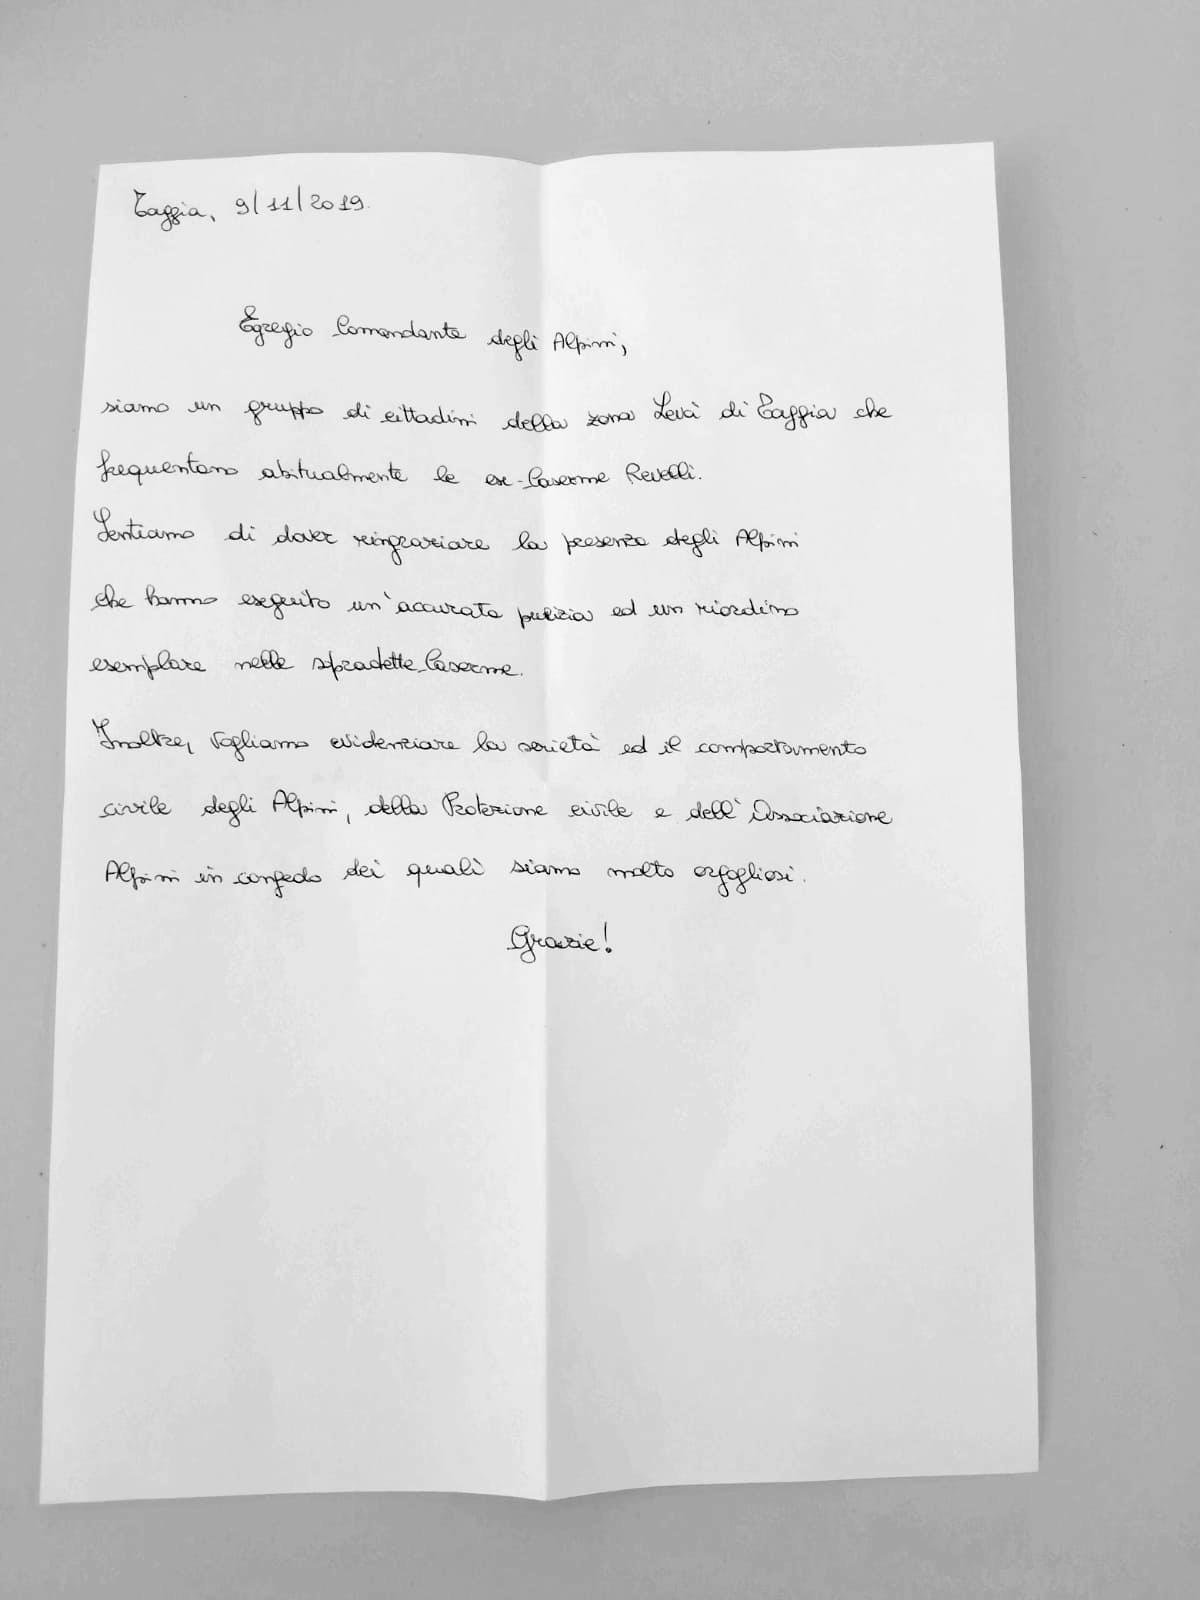 Taggia, 9/11/2019.
Egregio Comandante degli Alpini,
siamo un gruppo di cittadini della zona Levà di Taggia che
frequentano abitualmente le ex-Caserme Revelli.
Sentiamo di dover ringraziare la presenza degli Alpini
che hanno eseguito un'accurata pulizia ed un riordino
esemplare nelle spradette Caserme.
Inoltre, vogliamo evidenziare la serietà ed il comportamento
civile degli Alpini, della Protezione civile e dell'Associazione
Alpini in congedo dei quali siamo molto orgogliosi.
Grazie!